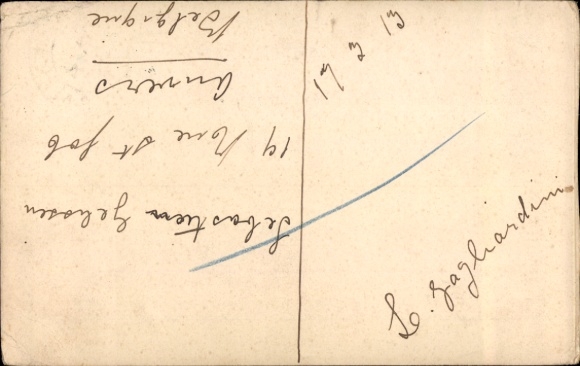 Sebastien Gebosen
19 Rue St Job
Anvers
Belgique
17 3 13
L. Gagliardini